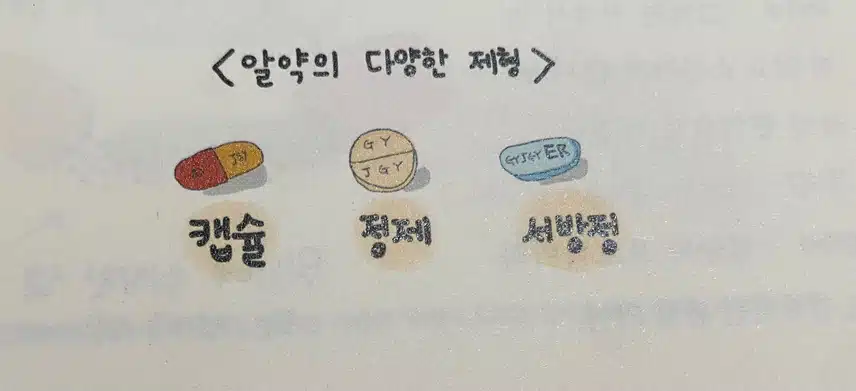 <알약의 다양한 제형>
GY
JGY
GYJGY ER
캡슐 정제 서방정